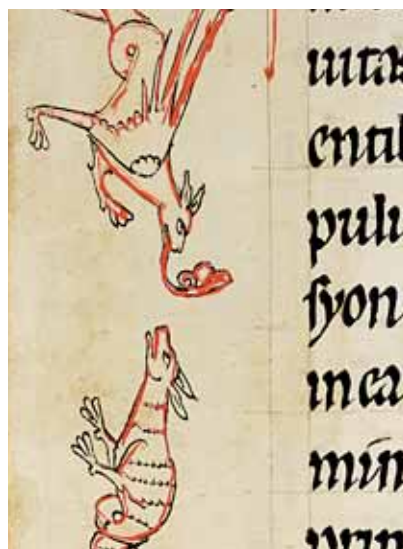 uitas
entib
pulu
ſyon
in ca
min